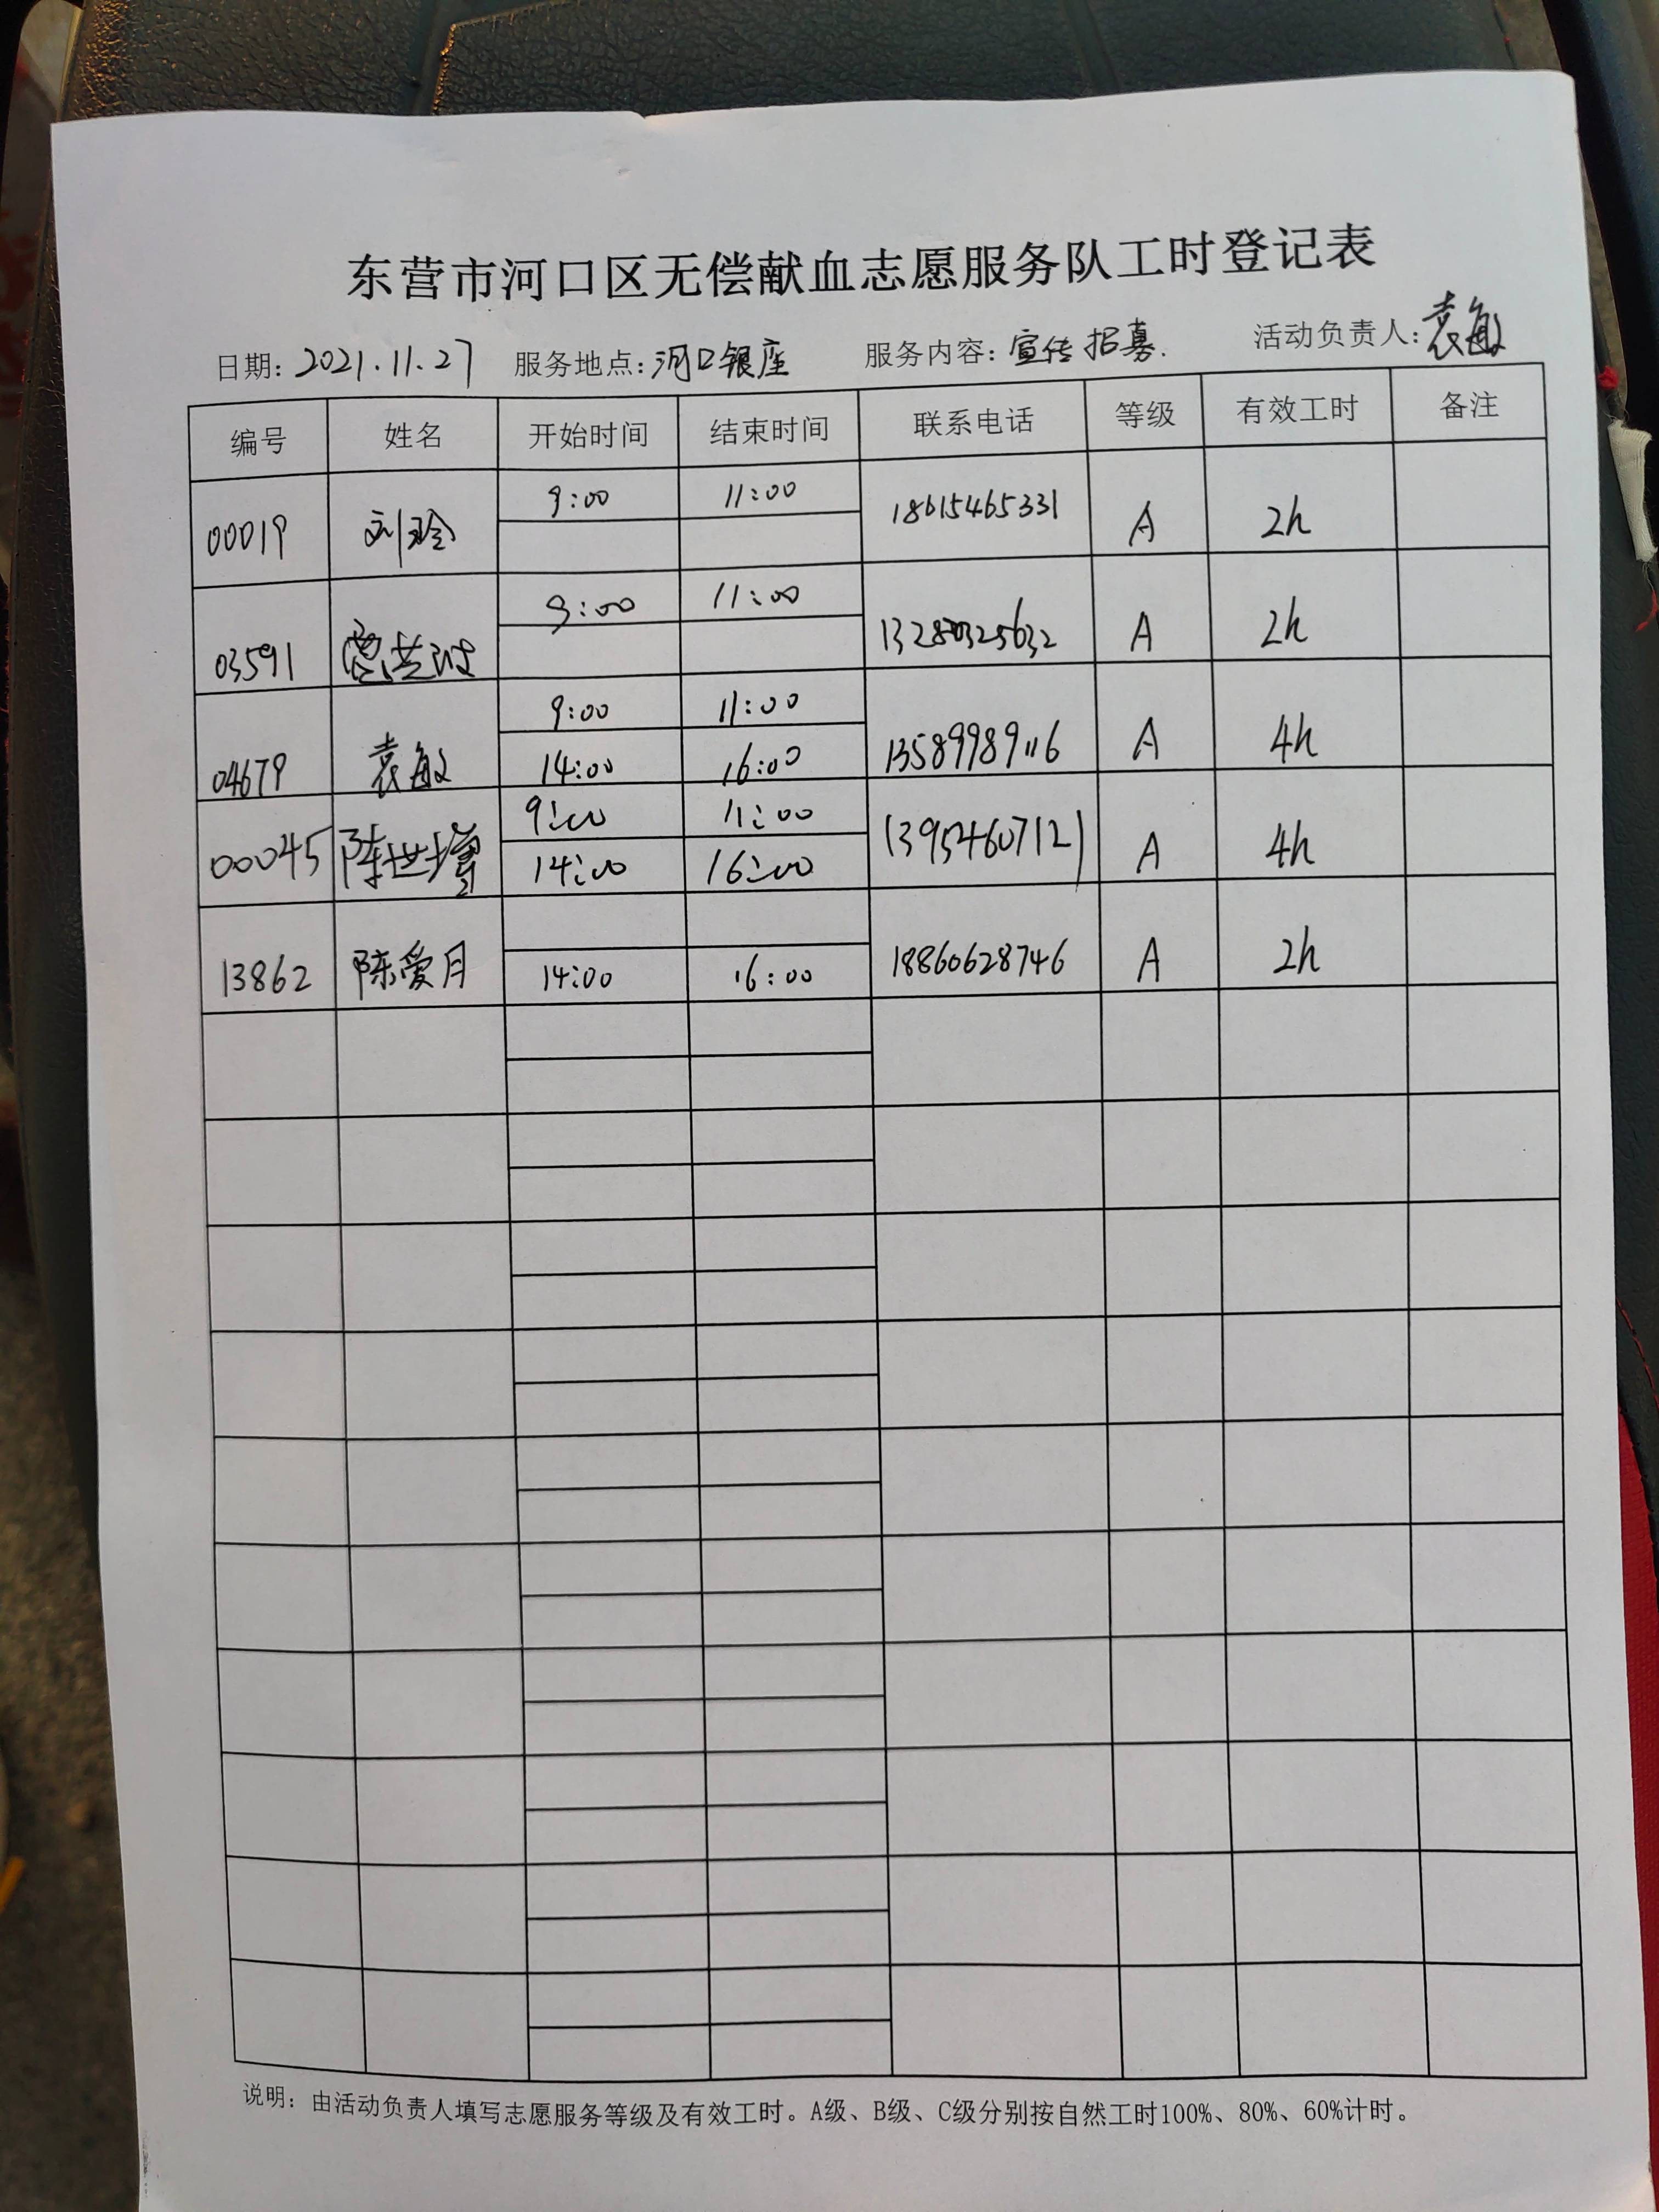 东营市河口区无偿献血志愿服务队工时登记表
日期: 2021.11.27 服务地点: 河口银座 服务内容: 宣传招募. 活动负责人: 袁敏
编号 姓名 开始时间 结束时间 联系电话 等级 有效工时 备注
00019 刘玲 9:00 11:00 18615465331 A 2h
03591 9:00 11:00 A 2h
04679 袁敏 9:00 11:00 13589989116 A 4h
14:00 16:00
00045 陈世增 9:00 11:00 13954607121 A 4h
14:00 16:00
13862 陈爱月 14:00 16:00 18860628746 A 2h
说明：由活动负责人填写志愿服务等级及有效工时。A级、B级、C级分别按自然工时100%、80%、60%计时。